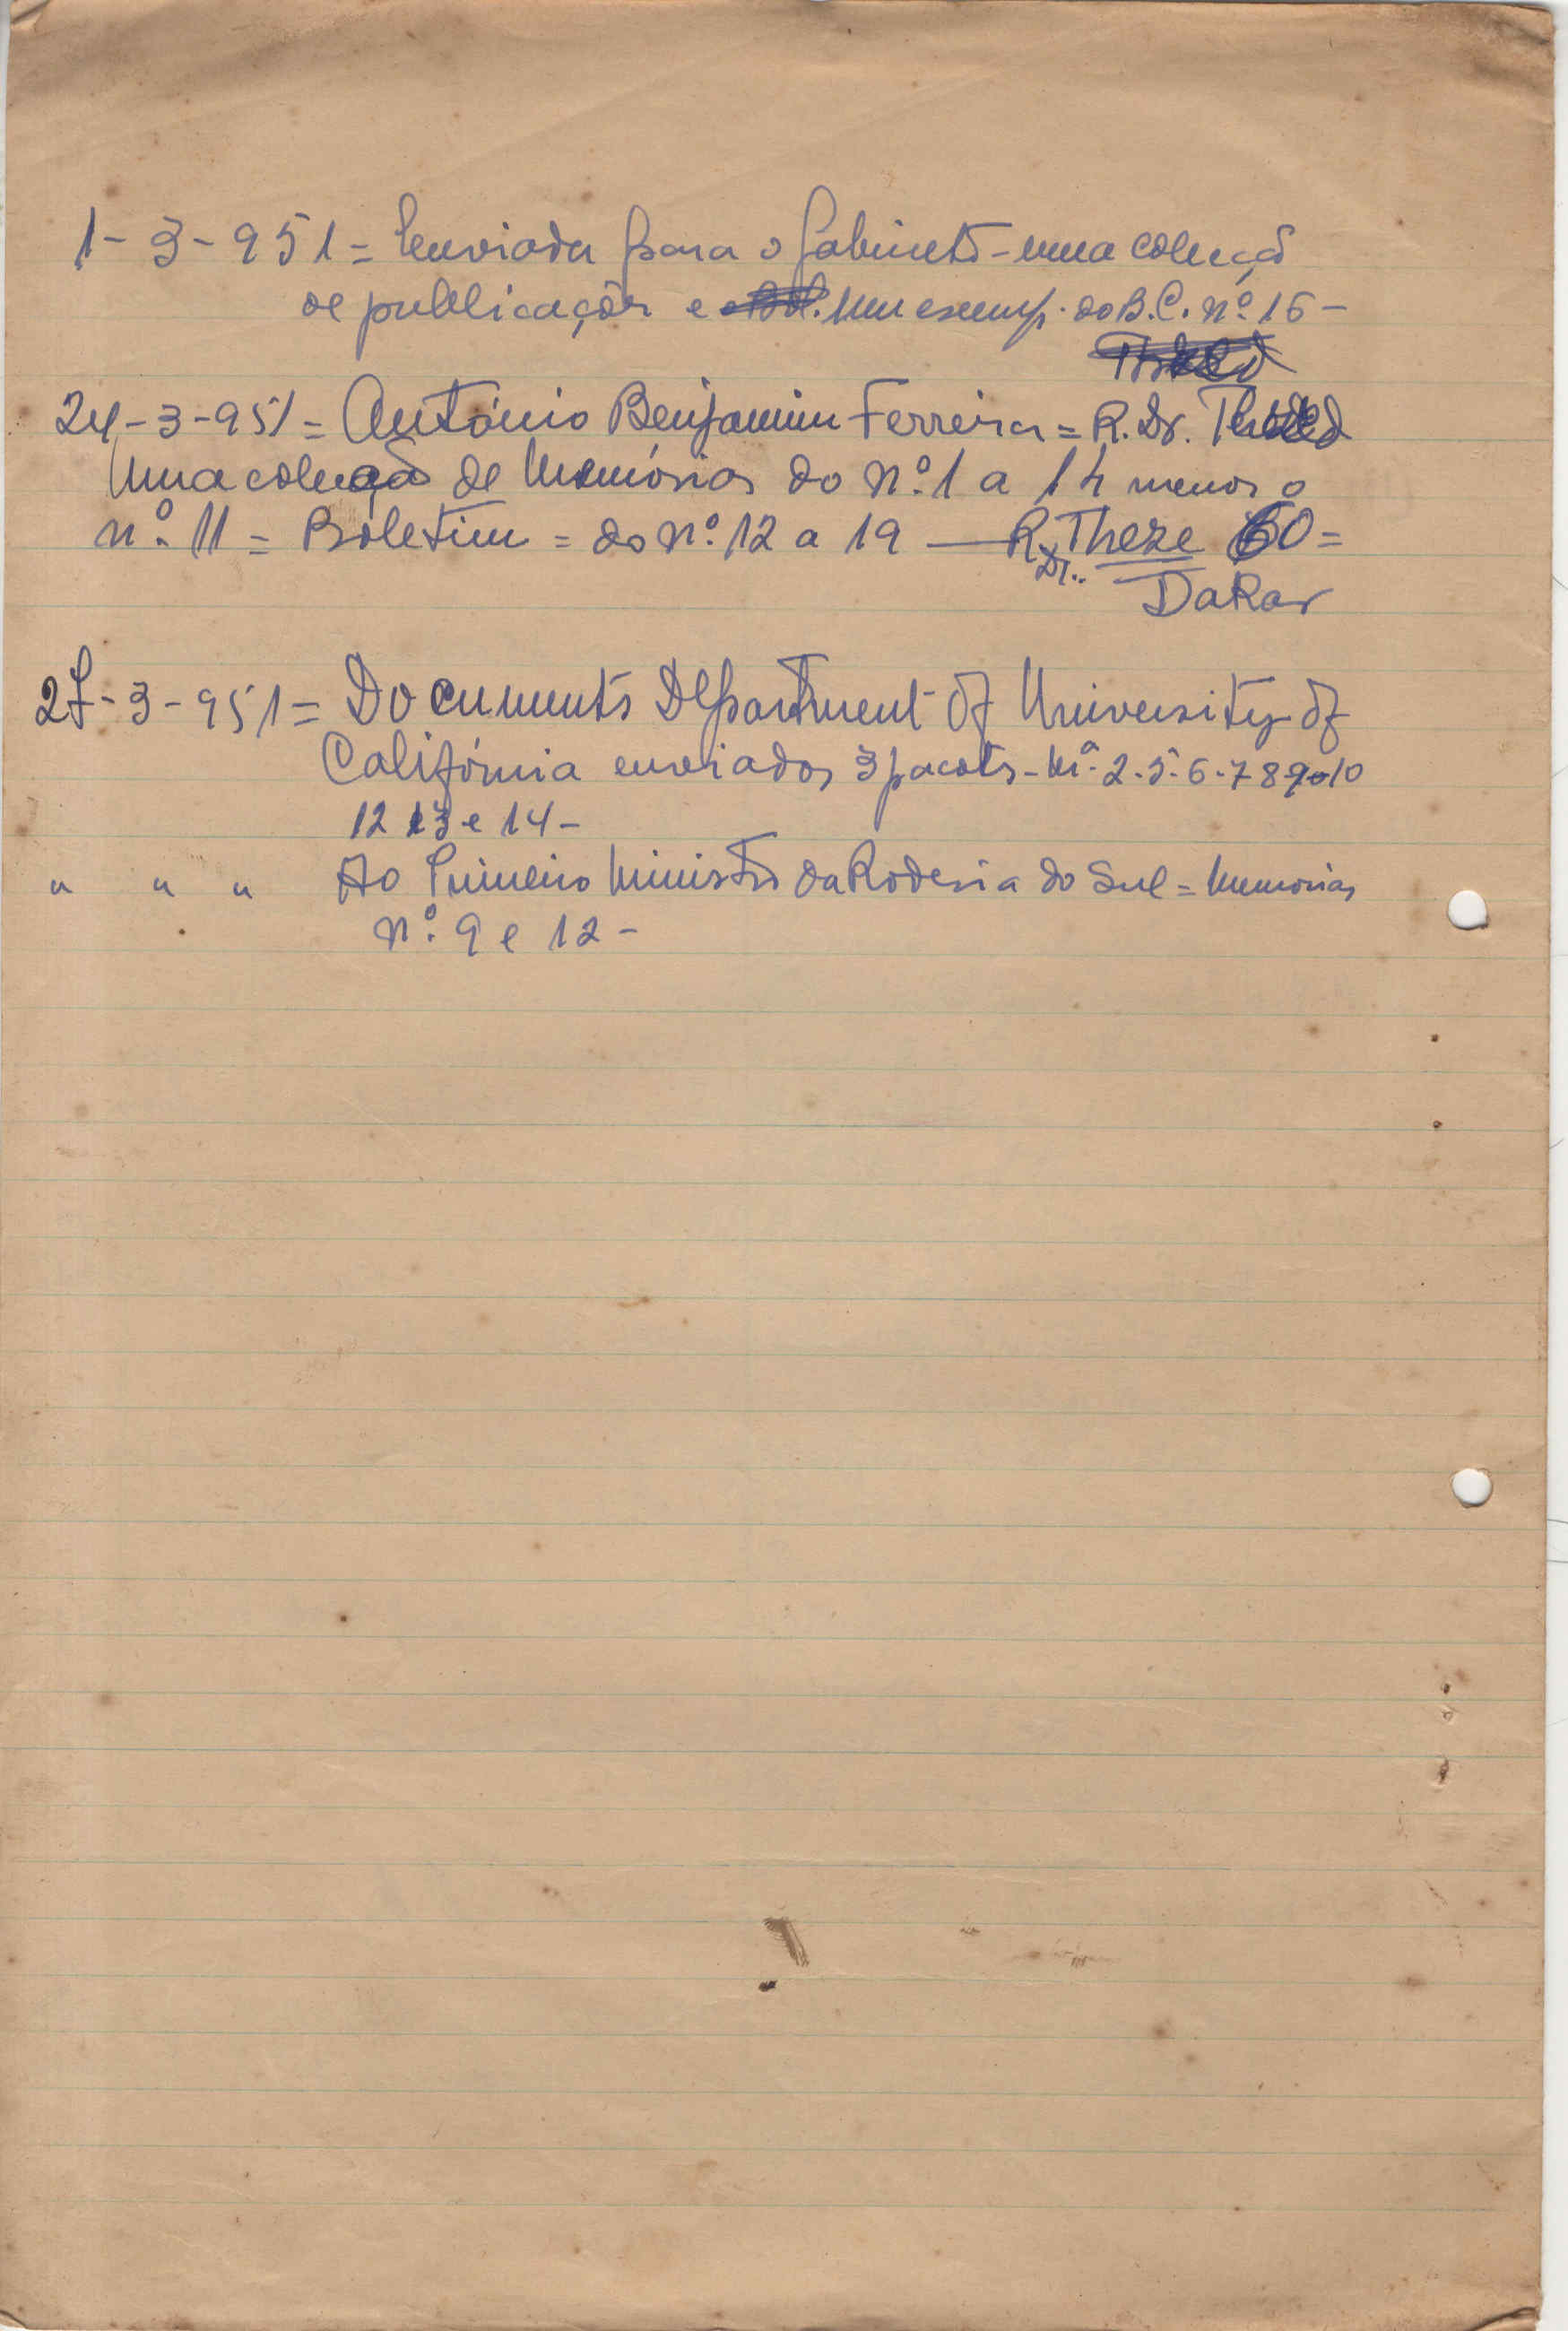 1-3-951 = Enviada para o Gabinete - uma colecçã
de publlicações e um exemp. do B.C. nº 16 -
24-3-951 = António Benjamim Ferreira = R. Dr.
Uma colecção de Memórias do nº 1 a 14 menos o
nº 11 = Boletim = do nº 12 a 19 — R. Dr. Theze 60 =
Dakar
27-3-951 = Documents Department of University of
Califórnia enviados 3 pacotes - Nº 2.5.6.7 8 9 10
12 13 e 14 -
" " " Ao Primeiro Ministro da Rodesia do Sul = Memorias
nº 9 e 12 -